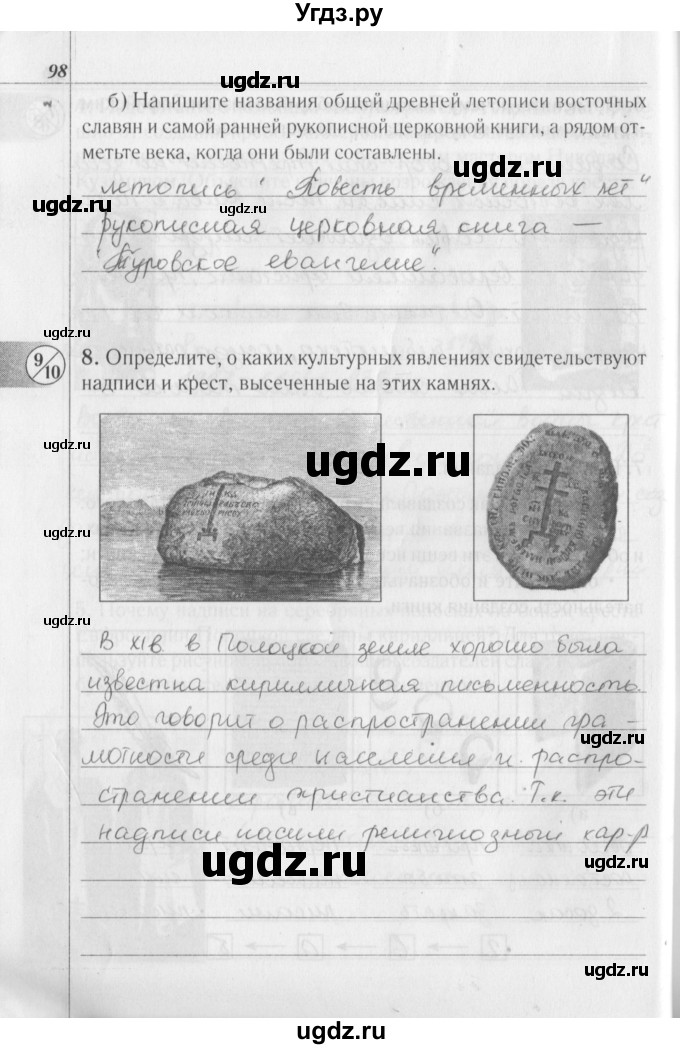 Угдз.ру
98
б) Напишите названия общей древней летописи восточных
славян и самой ранней рукописной церковной книги, а рядом от-
метьте века, когда они были составлены.
летопись "Повесть временных лет"
рукописная церковная книга —
"Туровское евангелие".
9/10
8. Определите, о каких культурных явлениях свидетельствуют
надписи и крест, высеченные на этих камнях.
В XIв в Полоцкой земле хорошо была
известна кирилличная письменность.
Это говорит о распространении гра-
мотности среди населения и распро-
странении христианства. Т.к. эти
надписи насили религиозный кар-р
ugdz.ru
ugdz.ru
ugdz.ru
ugdz.ru
ugdz.ru
ugdz.ru
ugdz.ru
ugdz.ru
ugdz.ru
ugdz.ru
ugdz.ru
ugdz.ru
ugdz.ru
ugdz.ru